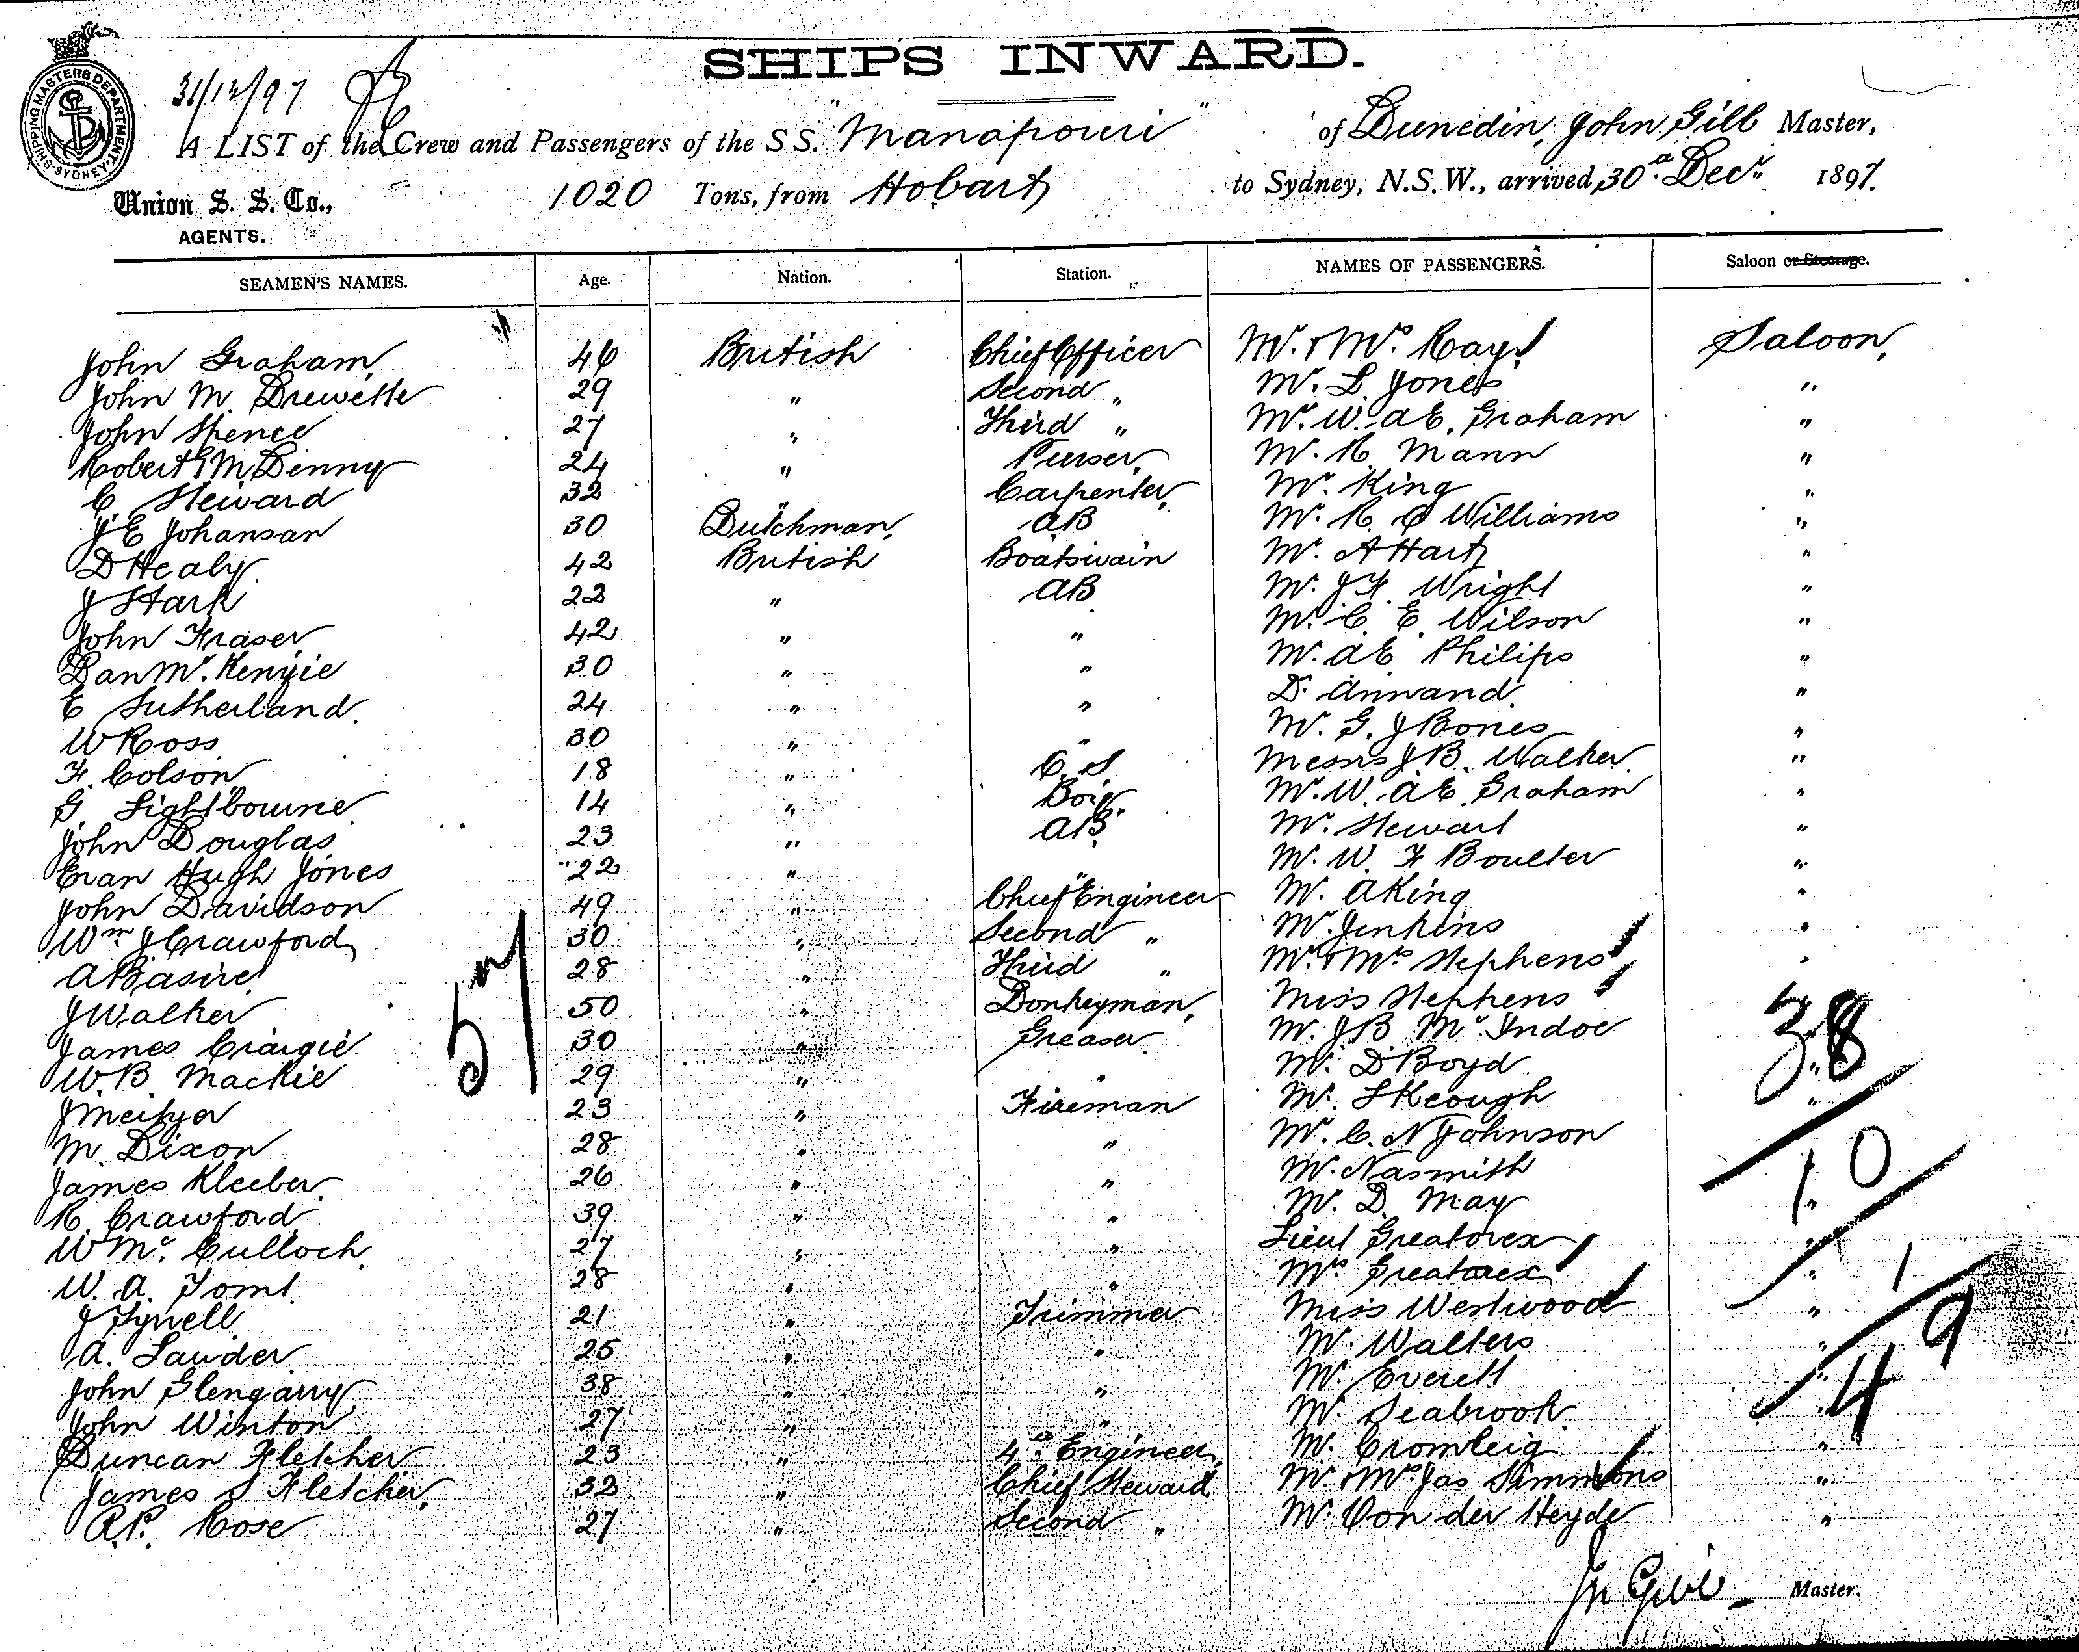 SHIPS INWARD.
SHIPPING MASTERS DEPARTMENT SYDNEY
31/12/97
A LIST of the Crew and Passengers of the S.S. "Manapouri" of Dunedin, John Gill Master,
Union S. S. Co., AGENTS.
1020 Tons, from Hobart to Sydney, N.S.W., arrived, 30th Decr 1897.
SEAMEN'S NAMES. Age. Nation. Station. NAMES OF PASSENGERS. Saloon or Steerage.
John Graham 46 British Chief Officer Mr. & Mrs. Ray Saloon,
John M. Drewette 29 " Second " Mr. L. Jones "
John Spence 27 " Third " Mr. W. A E. Graham "
Robert M. Denny 24 " Purser, Mr. R. Mann "
C. Steward 32 " Carpenter, Mr. King "
J E Johansan 30 Dutchman, AB Mr. R. C Williams "
D Healy 42 British Boatswain Mr. A Hart "
J Stark 22 " AB Mr. J F. Wright "
John Fraser 42 " " Mr. C. E. Wilson "
Dan Mc. Kenzie 30 " " Mr. A E Philips "
E Sutherland. 24 " " Dr. Annand. "
W Ross 30 " " Mr. G. J Bones "
F. Colson 18 " O. S. Messrs J B. Walker "
G. Lightbourne 14 " Boy. Mr. W. A E. Graham "
John Douglas 23 " AB. Mr. Stewart "
Evan Hugh Jones 22 " " Mr. W. F Boulter "
John Davidson 49 " Chief Engineer Mr. A King "
Wm. J Crawford 30 " Second " Mr. Jenkins "
A Basire 28 " Third " Mr. & Mrs Stephens "
J Walker 50 " Donkeyman, Miss Stephens "
James Craigie 30 " Greaser Mr. J B Mc. Indoe
W. B. Mackie 29 " " Mr. D Boyd "
23 " Fireman Mr. Keough "
M. Dixon 28 " " Mr. C. N Johnson
James Kleeber 26 " " Mr. Nasmith
R. Crawford 39 " " Mr. D. May "
W Mc. Culloch. 27 " " Lieut Greatorex "
W. A. Tomt. 28 " " Mrs Greatorex "
J Tyrell 21 " Trimmer Miss Westwood "
A. Lawder 25 " " Mr. Walters "
John Glengarry 38 " " Mr. Everett "
John Winton 27 " " Mr. Seabrook "
Duncan Fletcher 23 " 4th Engineer, Mr. Cromleig "
James S Fletcher, 32 " Chief Steward Mr. & Mrs Jas Simmons "
R. P. Rose 27 " Second " Mr. Von der Heyde "
57
38
10
1
49
Jn Gill Master.